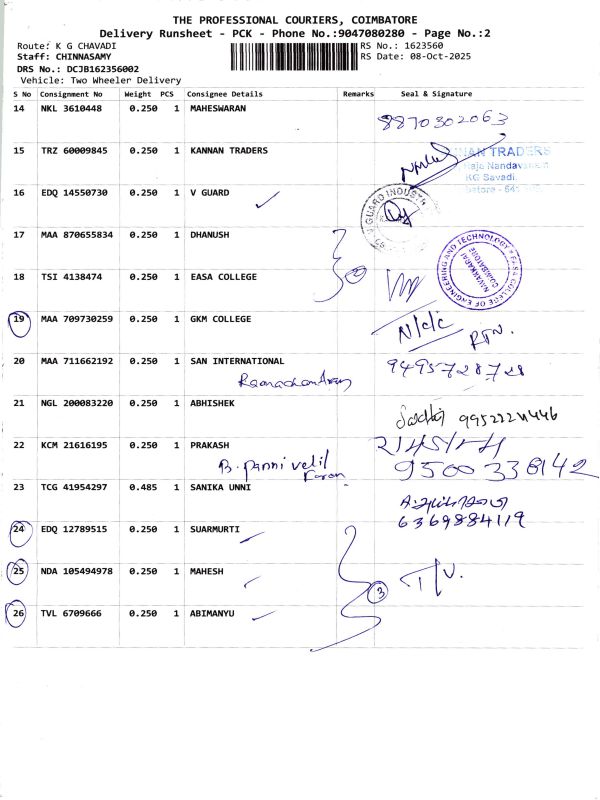 THE PROFESSIONAL COURIERS, COIMBATORE
Delivery Runsheet - PCK - Phone No.:9047080280 - Page No.:2
Route: K G CHAVADI RS No.: 1623560
Staff: CHINNASAMY RS Date: 08-Oct-2025
DRS No.: DCJB162356002
Vehicle: Two Wheeler Delivery
S No Consignment No Weight PCS Consignee Details Remarks Seal & Signature
14 NKL 3610448 0.250 1 MAHESWARAN
8870302063
15 TRZ 60009845 0.250 1 KANNAN TRADERS
NAN TRADERS
KG Savadi.
16 EDQ 14550730 0.250 1 V GUARD
V GUARD INDUST
17 MAA 870655834 1 DHANUSH 0.250
18 TSI 4138474 0.250 1 EASA COLLEGE
EASA COLLEGE OF ENGINEERING AND TECHNOLOGY
NAVAKKARAI
COIMBATORE
19 MAA 709730259 0.250 1 GKM COLLEGE
N/c/c RTN.
20 MAA 711662192 0.250 1 SAN INTERNATIONAL
Ramachandran 9495728728
21 NGL 200083220 0.250 1 ABHISHEK
9952221446
22 KCM 21616195 0.250 1 PRAKASH
9500338142
23 TCG 41954297 0.485 1 SANIKA UNNI
6369884119
24 EDQ 12789515 0.250 1 SUARMURTI
25 NDA 105494978 0.250 1 MAHESH
3 T/V.
26 TVL 6709666 0.250 1 ABIMANYU